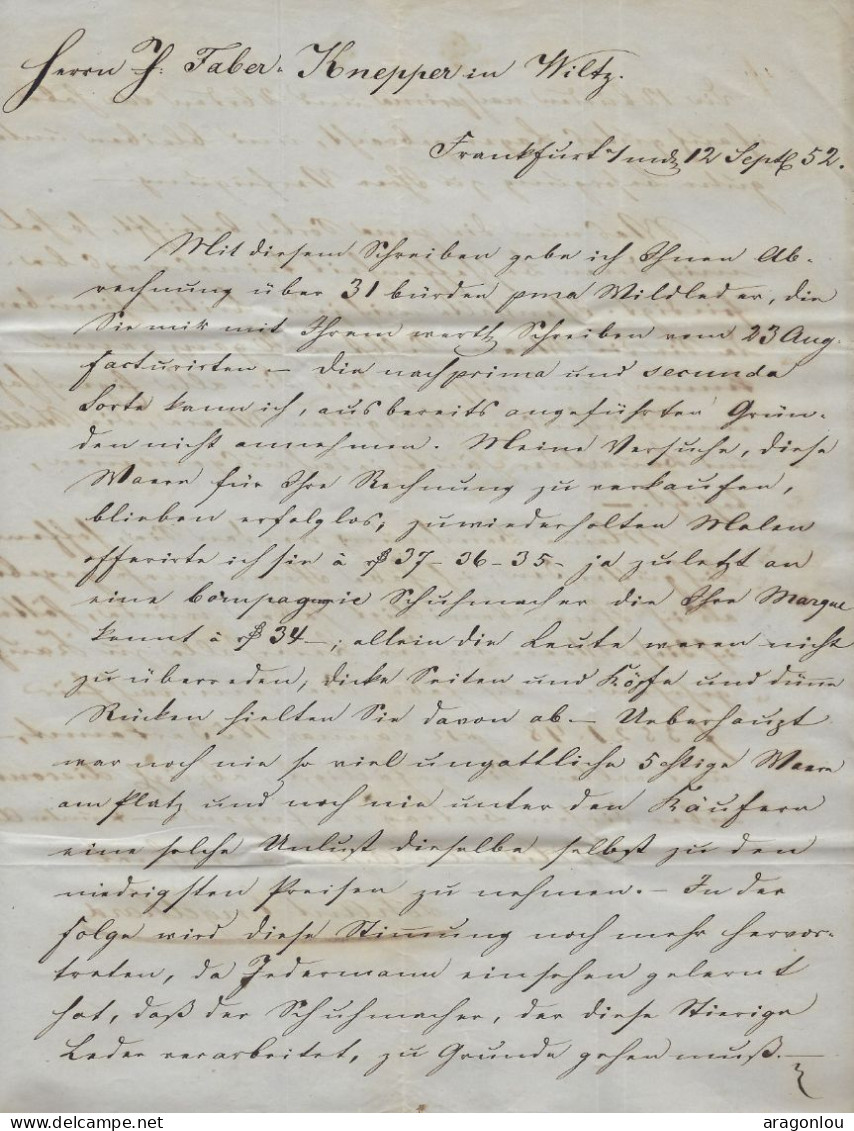 Herrn J. Faber-Knepper in Wiltz.
Frankfurt a/m d 12 Sept 52.
Mit diesem Schreiben gebe ich Ihnen Ab-
rechnung über 31 bürden pma Wildleder, die
Sie mir mit Ihrem werth Schreiben vom 23 Aug.
facturirten – Die nachprima und secunda
Sorte kann ich, aus bereits angeführten Grün-
den nicht annehmen. Meine Versuche, diese
Waare für Ihre Rechnung zu verkaufen,
blieben erfolglos, zu wiederholten Malen
offerirte ich sie à 37–36–35– ja zuletzt an
eine Compagnie Schuhmacher die Ihre Marque
kennt à 34–; allein die Leute waren nicht
zu überreden, dicke Seiten und Köpfe und dünne
Rücken hielten Sie davon ab – Ueberhaupt
war noch nie so viel ungattliche Waare
am Platz und noch nie unter den Käufern
eine solche Unlust dieselbe selbst zu den
niedrigsten Preisen zu nehmen. – In der
Folge wird diese Stimmung noch mehr hervor-
treten, da Jedermann einsehen gelernt
hat, daß der Schuhmacher, der diese Stierige
Leder verarbeitet, zu Grunde gehen muß. –
aragonlou